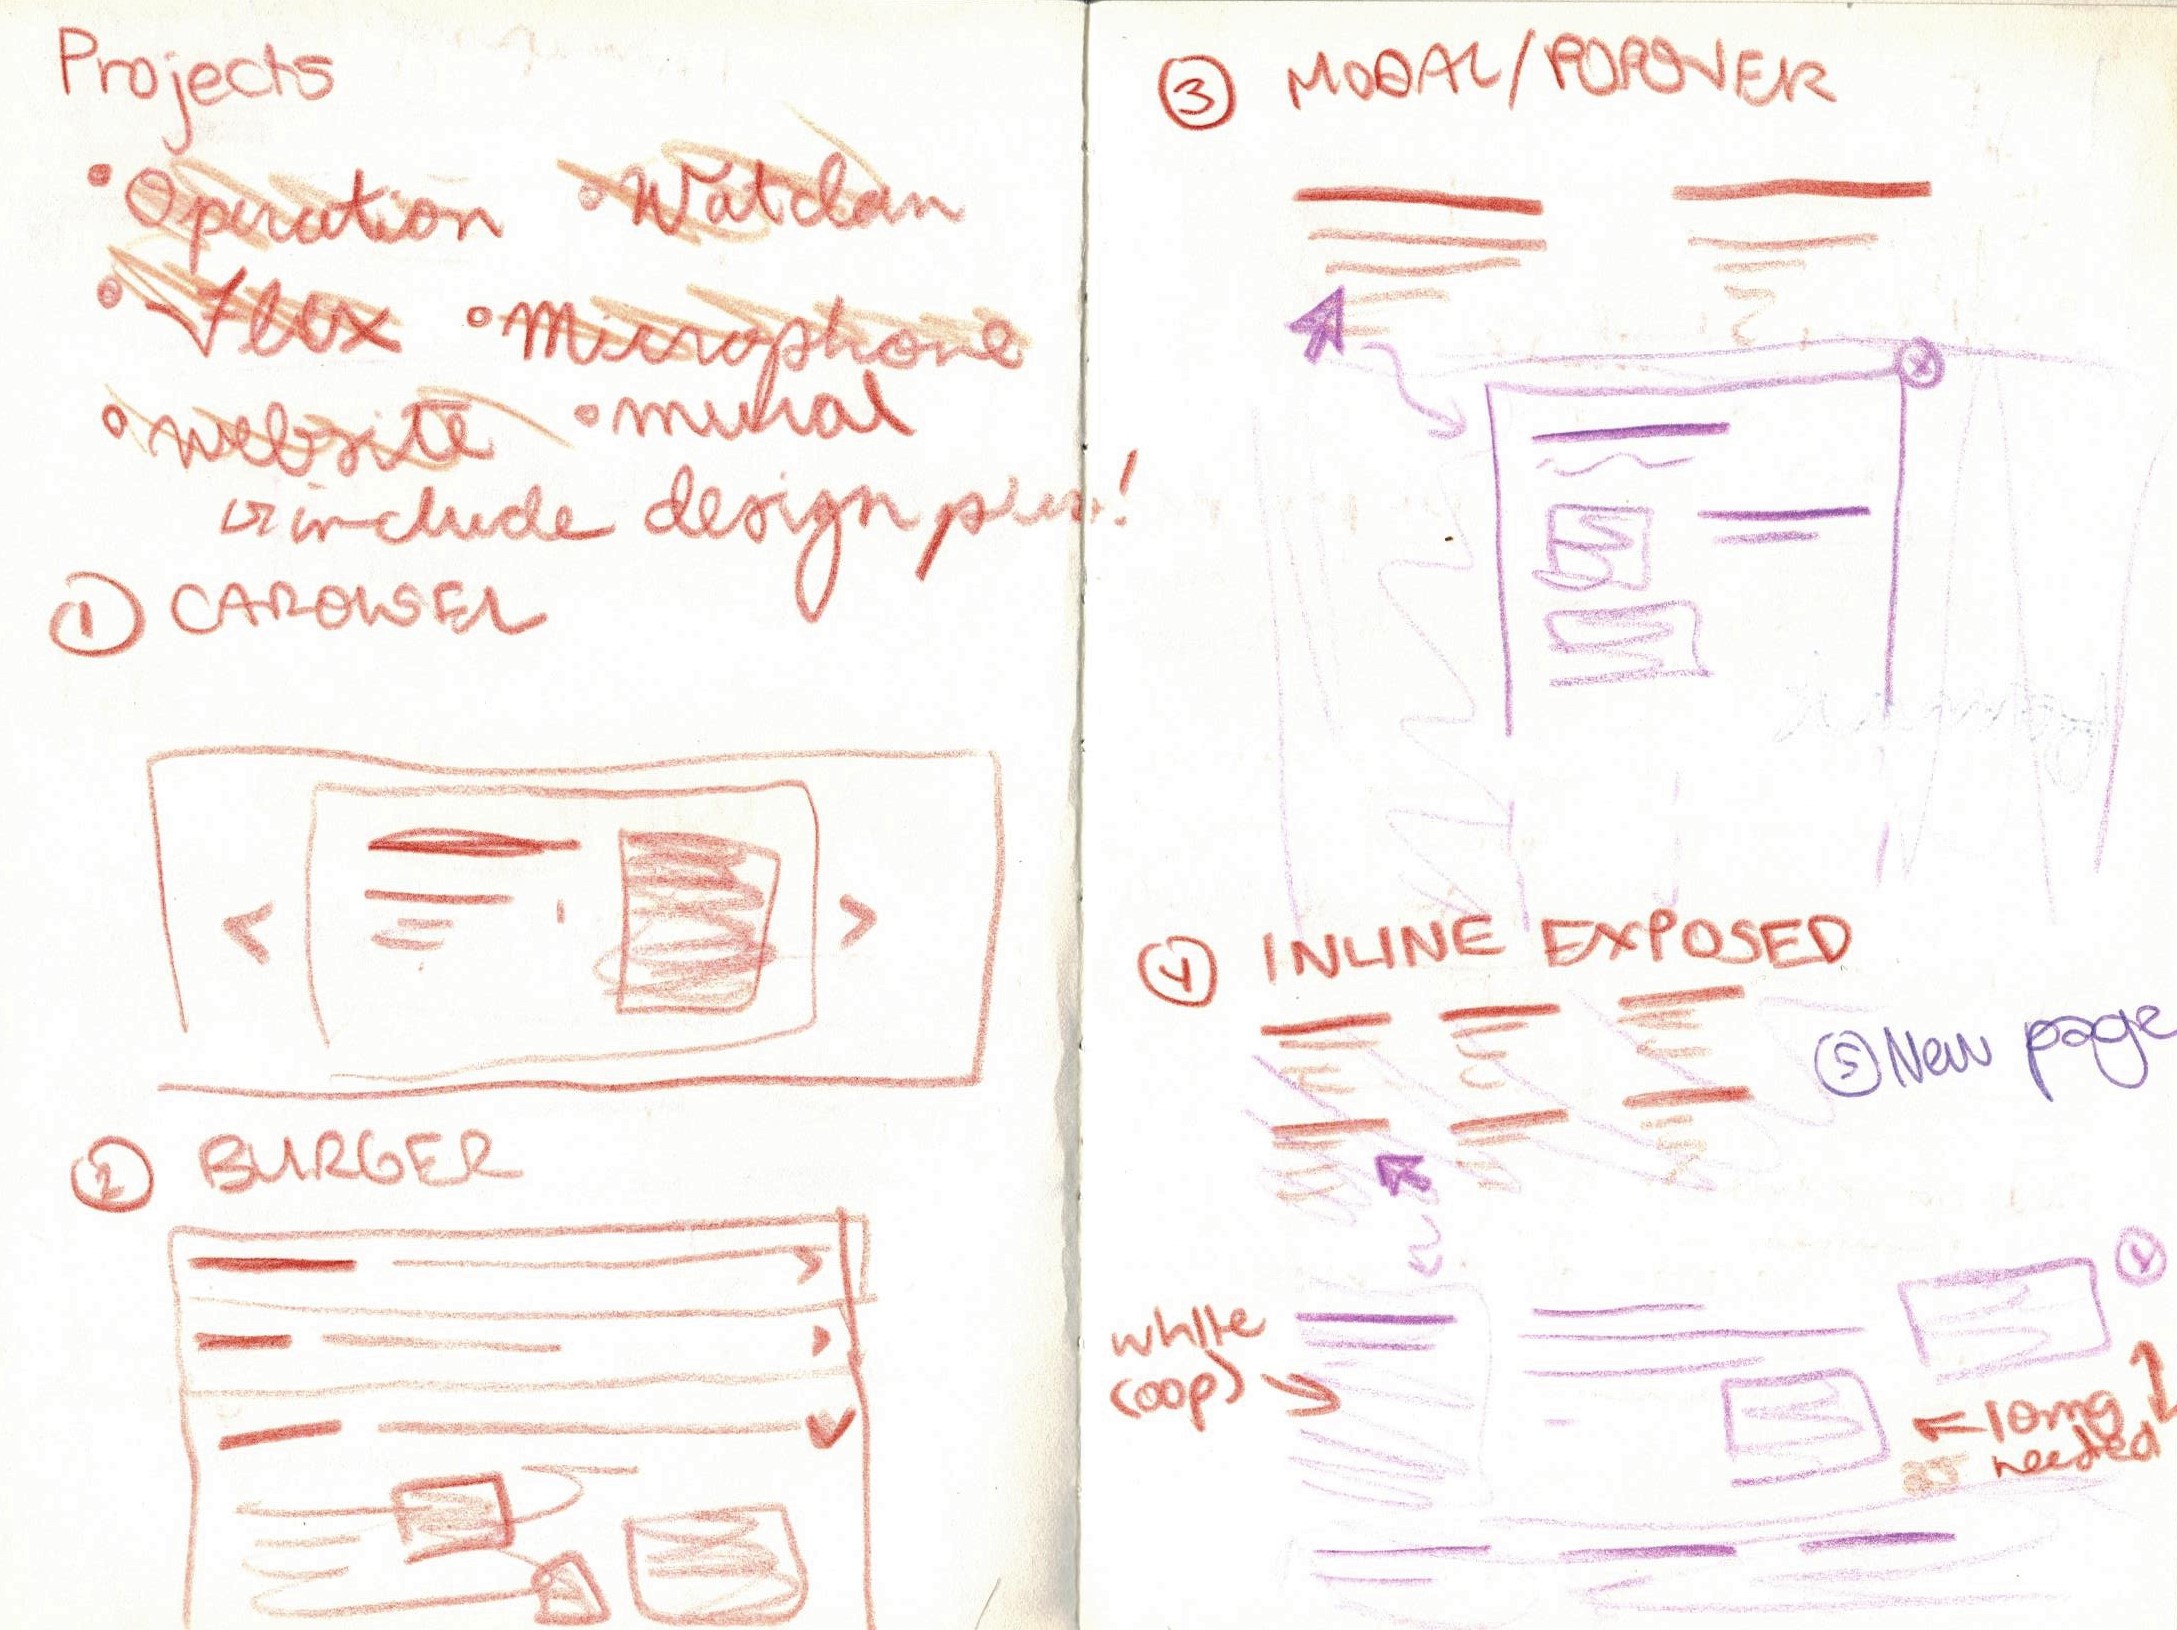 Projects
• Operation • Watclan
• Flox • Microphone
• website • mural
↳ include design pics!
① CAROUSEL
② BURGER
③ MODAL/POPOVER
x
④ INLINE EXPOSED
⑤ New page
x
white
(oop)
← 10mg
needed